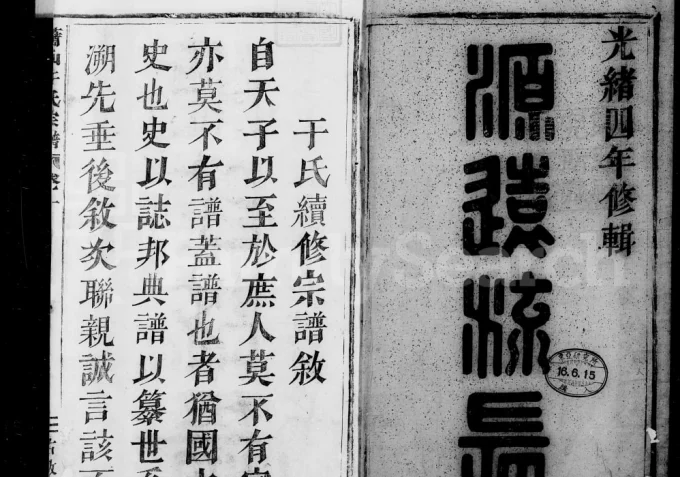 光緒四年修輯
源遠流長
16.6.15
干氏續修宗譜敘
自天子以至於庶人莫不有
亦莫不有譜蓋譜也者猶國
史也史以誌邦典譜以纂世
溯先垂後敘次聯親誠言該